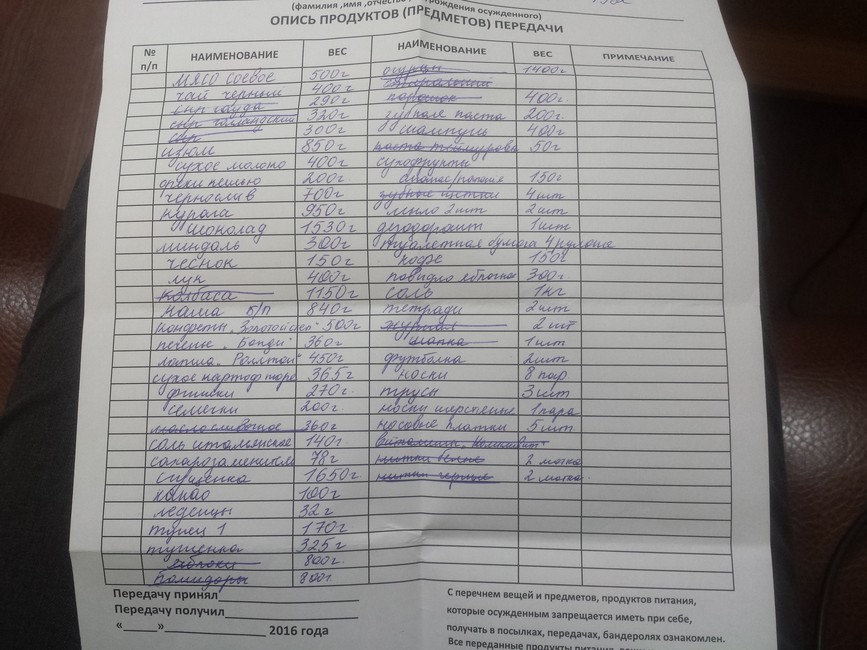 (фамилия ,имя ,отчество, рождения осужденного)
ОПИСЬ ПРОДУКТОВ (ПРЕДМЕТОВ) ПЕРЕДАЧИ
№ п/п НАИМЕНОВАНИЕ ВЕС НАИМЕНОВАНИЕ ВЕС ПРИМЕЧАНИЕ
мясо соевое 500г огурцы 1400г
чай черный 400г
сыр гауда 290г порошок 400г
сыр голландский 320г зубная паста 200г
сыр 300г шампунь 400г
изюм 850г паста 50г
сухое молоко 400г сухофрукты
орехи кешью 200г 150г
чернослив 700г зубные щетки 4шт
курага 950г мыло 2шт 2шт
шоколад 1530г дезодорант 1шт
миндаль 300г туалетная бумага 4 рулона
чеснок 150г кофе 150г
лук 400г повидло яблочное 300г
колбаса 1150г соль 1кг
каша б/п 840г тетради 2шт
конфеты "Золотой 500г журнал 2шт
печенье "Бонди" 360г шапка 1шт
лапша "Роллтон" 450г футболка 2шт
сухое картоф пюре 365г носки 8 пар
финики 270г трусы 3шт
семечки 200г носки шерстяные 1пара
масло сливочное 360г носовые платки 5шт
соль итальянская 140г витамины
сахарозаменитель 78г нитки белые 2 мотка
сгущенка 1650г нитки черные 2 мотка
какао 100г
леденцы 32г
170г
тушенка 325г
яблоки 800г
помидоры 800г
Передачу принял
Передачу получил
«____»____________ 2016 года
С перечнем вещей и предметов, продуктов питания,
которые осужденным запрещается иметь при себе,
получать в посылках, передачах, бандеролях ознакомлен.
Все переданные продукты питания,